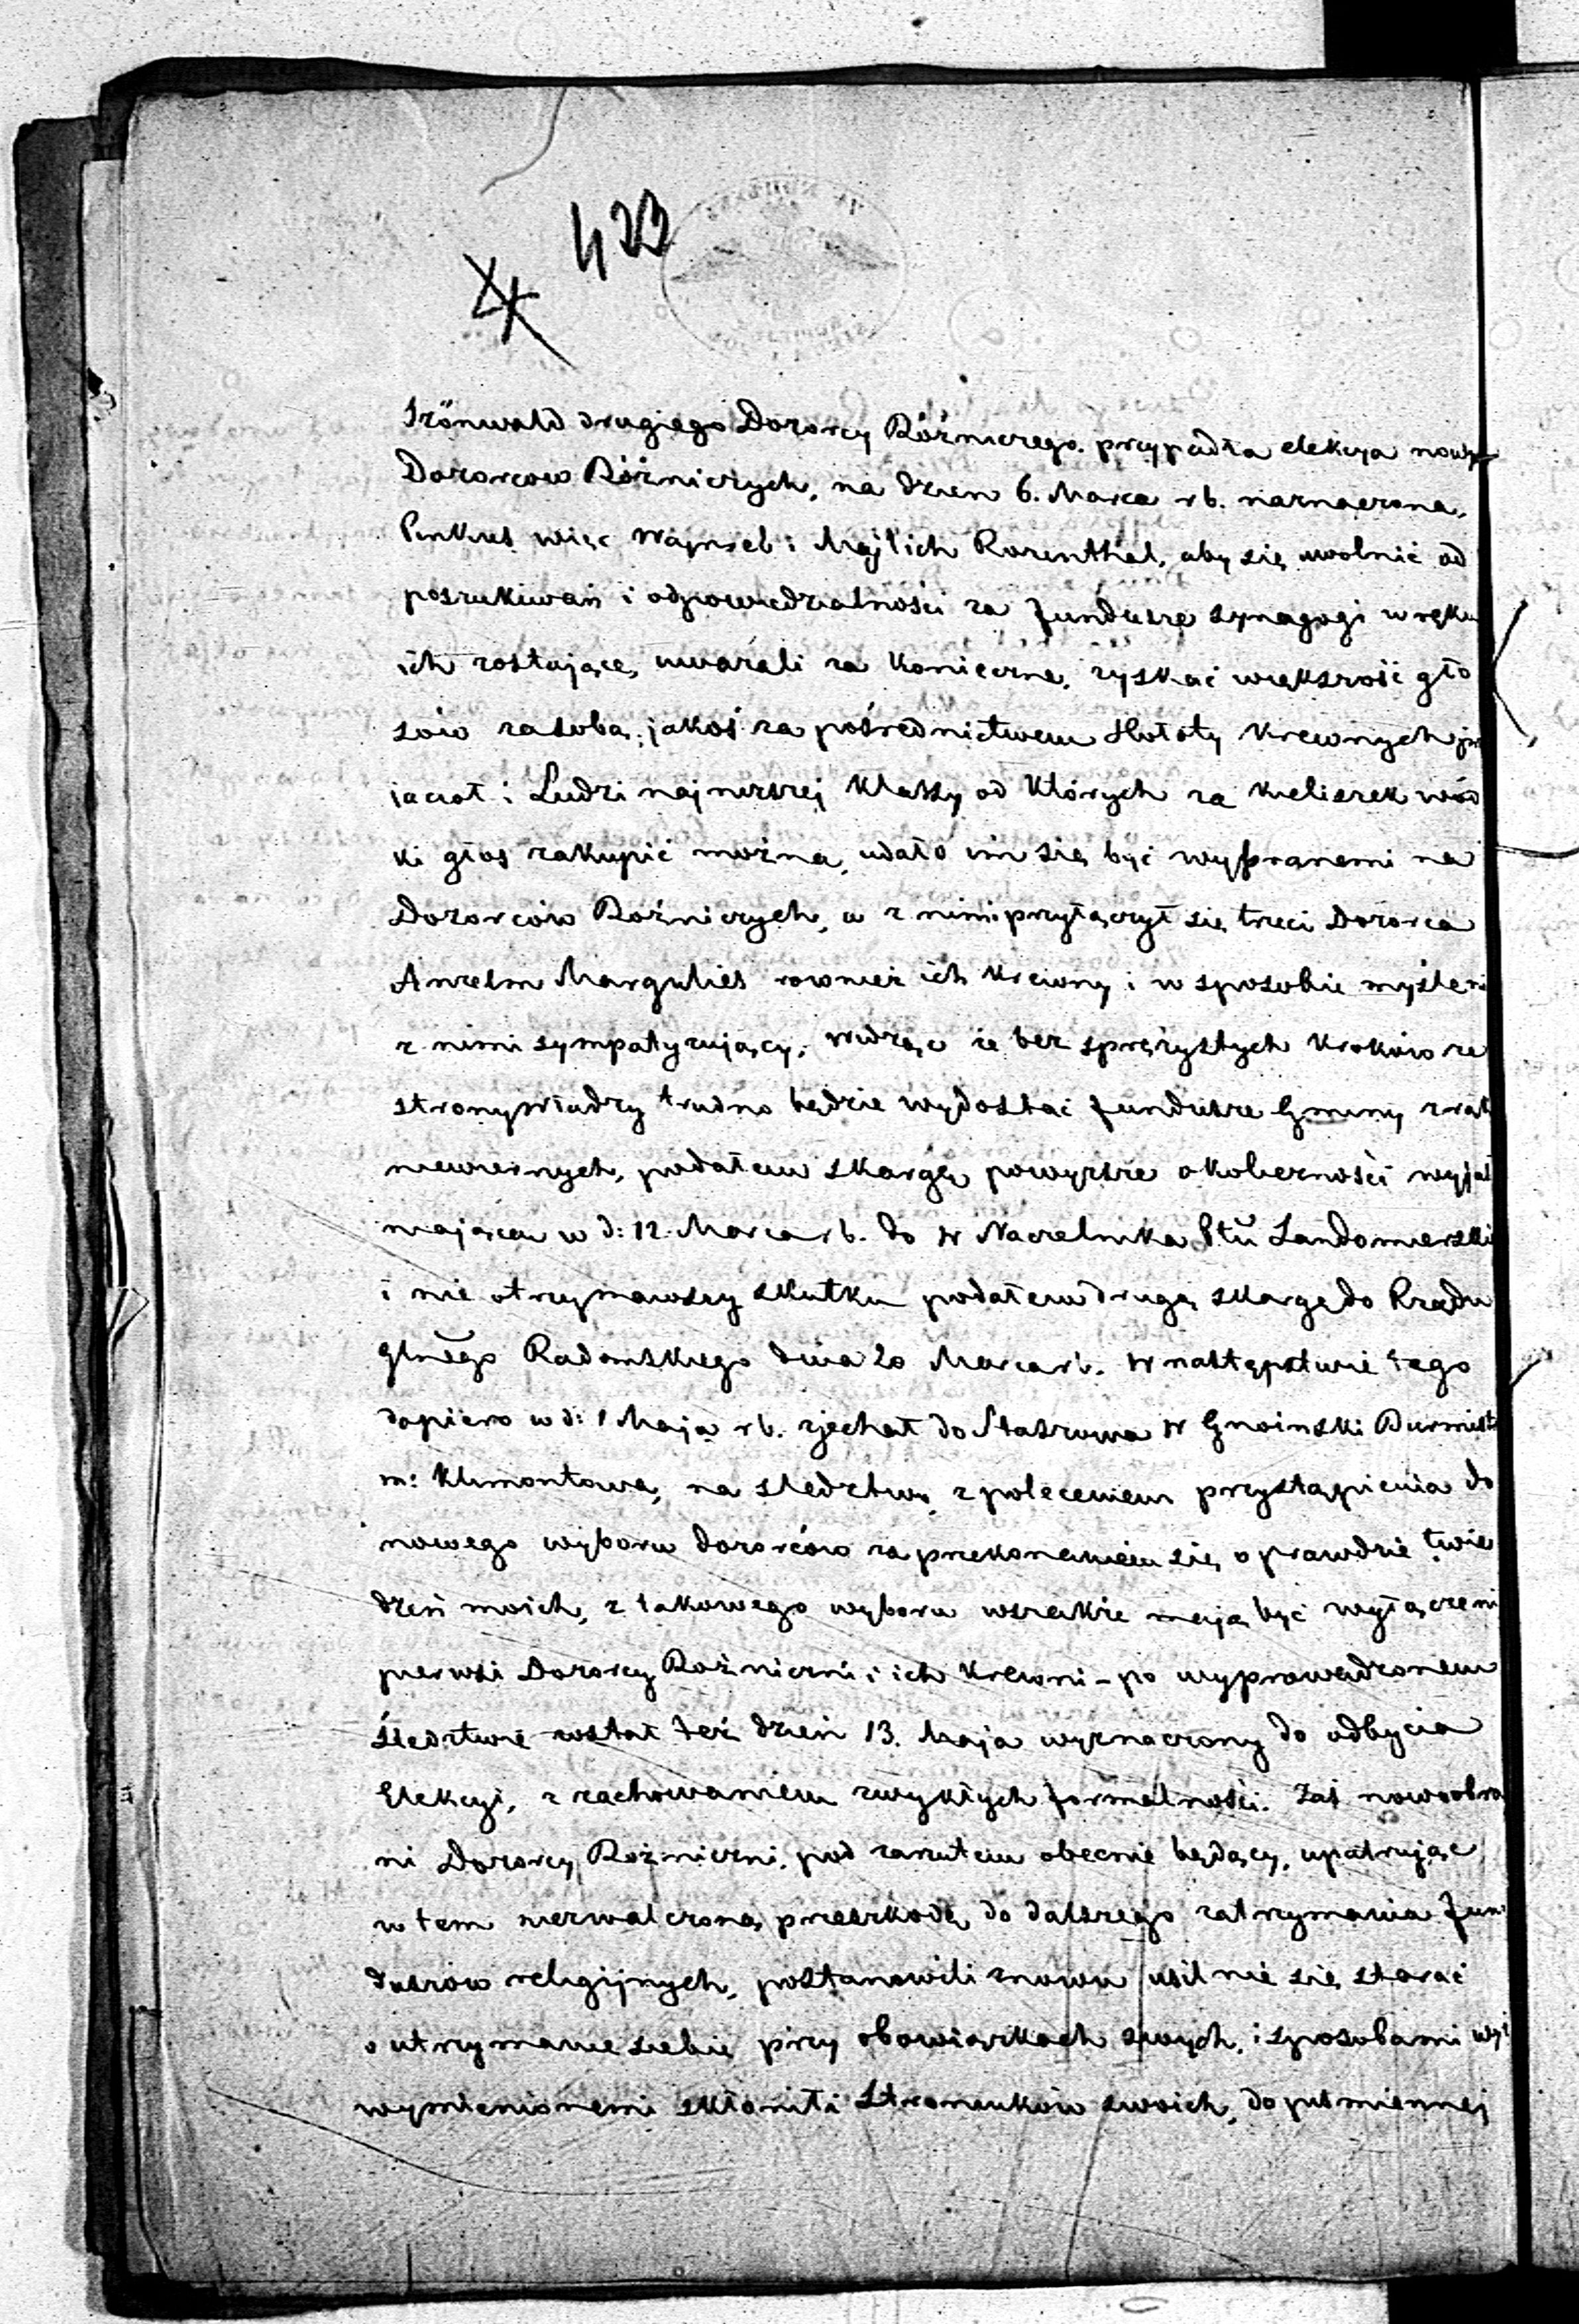 423
Grönwald drugiego Dozorcy Bóżniczego. przypadła elekcya nowych
Dozorców Bóżniczych, na dzien 6. Marca rb. naznaczona,
Pinkus więc Wajnsel i Majlich Rozenthal, aby się uwolnić od
poszukiwań i odpowiedzialności za fundusze synagogi w ręku
ich zostające, uważali za konieczne, zyskać większość gło
sów za sobą, jakoś za pośrednictwem Hołoty krewnych
iaciół i Ludzi najniższej klassy od których za kieliszek wód
ki głos zakupić można, udało im się być wybranemi na
Dozorców Bożniczych, a z nimi przyłączył się trzeci Dozorca
Anzelm Margulies rownież ich krewny i w sposobie myśleni
z nimi sympatyzujący, Widząc że bez sprężystych kroków ze
strony władzy trudno będzie wydostać fundusze Gminy z rąk
niewiernych, podałem skargę powyższe okoliczności wyjaś
niającą w d: 12. Marca rb. do W Naczelnika Ptu Sandomierski
i nie otrzymawszy skutku podałem drugą skargę do Rządu
Glnego Radomskiego dnia 20 Marca rb. W następstwie tego
dopiero w d: 1 Maja rb. zjechał do Staszowa W Gnoinski Burmistrz
m: Klimontowa, na śledztwo, z poleceniem przystąpienia do
nowego wyboru dozorców za przekonaniem się o prawdzie twie
dzeń moich, z takowego wyboru wszakże mają być wyłączeni
pierwsi Dozorcy Bożniczni i ich krewni – po wyprowadzonem
Śledztwie został też dzień 13. Maja wyznaczony do odbycia
Elekcyi, z zachowaniem zwykłych formalności. Zaś nowoobra
ni Dozorcy Bożniczni, pod zarzutem obecnie będący, upatrując
w tem niezwalczoną przeszkodę do dalszego zatrzymania fun
duszów religijnych, postanowili znowu usilnie się starać
o utrzymanie siebie przy obowiązkach swych, i sposobami wyż
wymienionemi skłonili stronników swoich, do piśmiennej